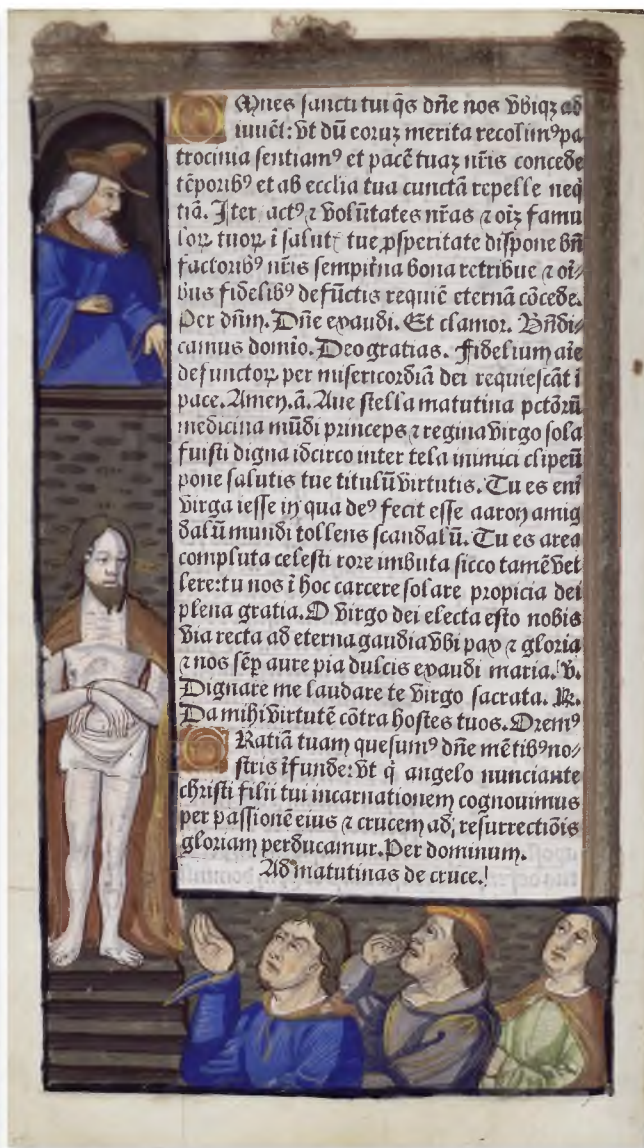 OMnes sancti tui q̃s dñe nos vbiqȝ ad
iuuẽt: vt dũ eoruȝ merita recolimꝰ pa
trocinia sentiamꝰ et pacẽ tuaȝ nr̃is concede
tẽporibꝰ et ab ecclia tua cunctã repelle neq̃
tiã. Iter actꝰ ⁊ volũtates nr̃as ⁊ oĩȝ famu
loꝝ tuoꝝ ĩ salutẽ tue ꝓsperitate dispone bñ
factoribꝰ nr̃is sempit̃na bona retribue ⁊ oĩ⸗
bus fidelibꝰ defũctis requiẽ eternã cõcede.
Per dñm. Dñe exaudi. Et clamor. Bñdi⸗
camus domĩo. Deo gratias. Fidelium aĩe
defunctoꝝ per misericordiã dei requiescãt ĩ
pace. Amen. ã. Aue stella matutina pctõrũ
medicina mũdi princeps ⁊ regina virgo sola
fuisti digna idcirco inter tela inimici clipeũ
pone salutis tue titulũ virtutis. Tu es eni
virga iesse in qua deꝰ fecit esse aaron amig
dalũ mundi tollens scandalũ. Tu es area
compluta celesti rore imbuta sicco tamẽ vel
lere: tu nos ĩ hoc carcere solare propicia dei
plena gratia. O virgo dei electa esto nobis
via recta ad eterna gaudia vbi pax ⁊ gloria
⁊ nos sẽp aure pia dulcis exaudi maria. v̾.
Dignare me laudare te virgo sacrata. ℟.
Da mihi virtutẽ cõtra hostes tuos. Oremꝰ
GRatiã tuam quesumꝰ dñe mẽtibꝰ no⸗
stris ĩfunde: vt q̃ angelo nunciante
christi filii tui incarnationem cognouimus
per passionẽ eius ⁊ crucem ad resurrectiõis
gloriam perducamur. Per dominum.
Ad matutinas de cruce.